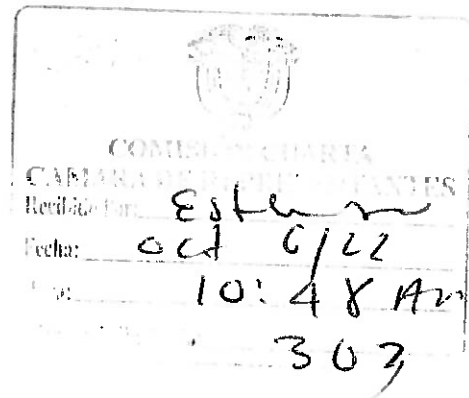 COMISIÓN CUARTA
CAMARA DE REPRESENTANTES
Recibido Por:
Fecha: Oct 6/22
10:48 Am
303